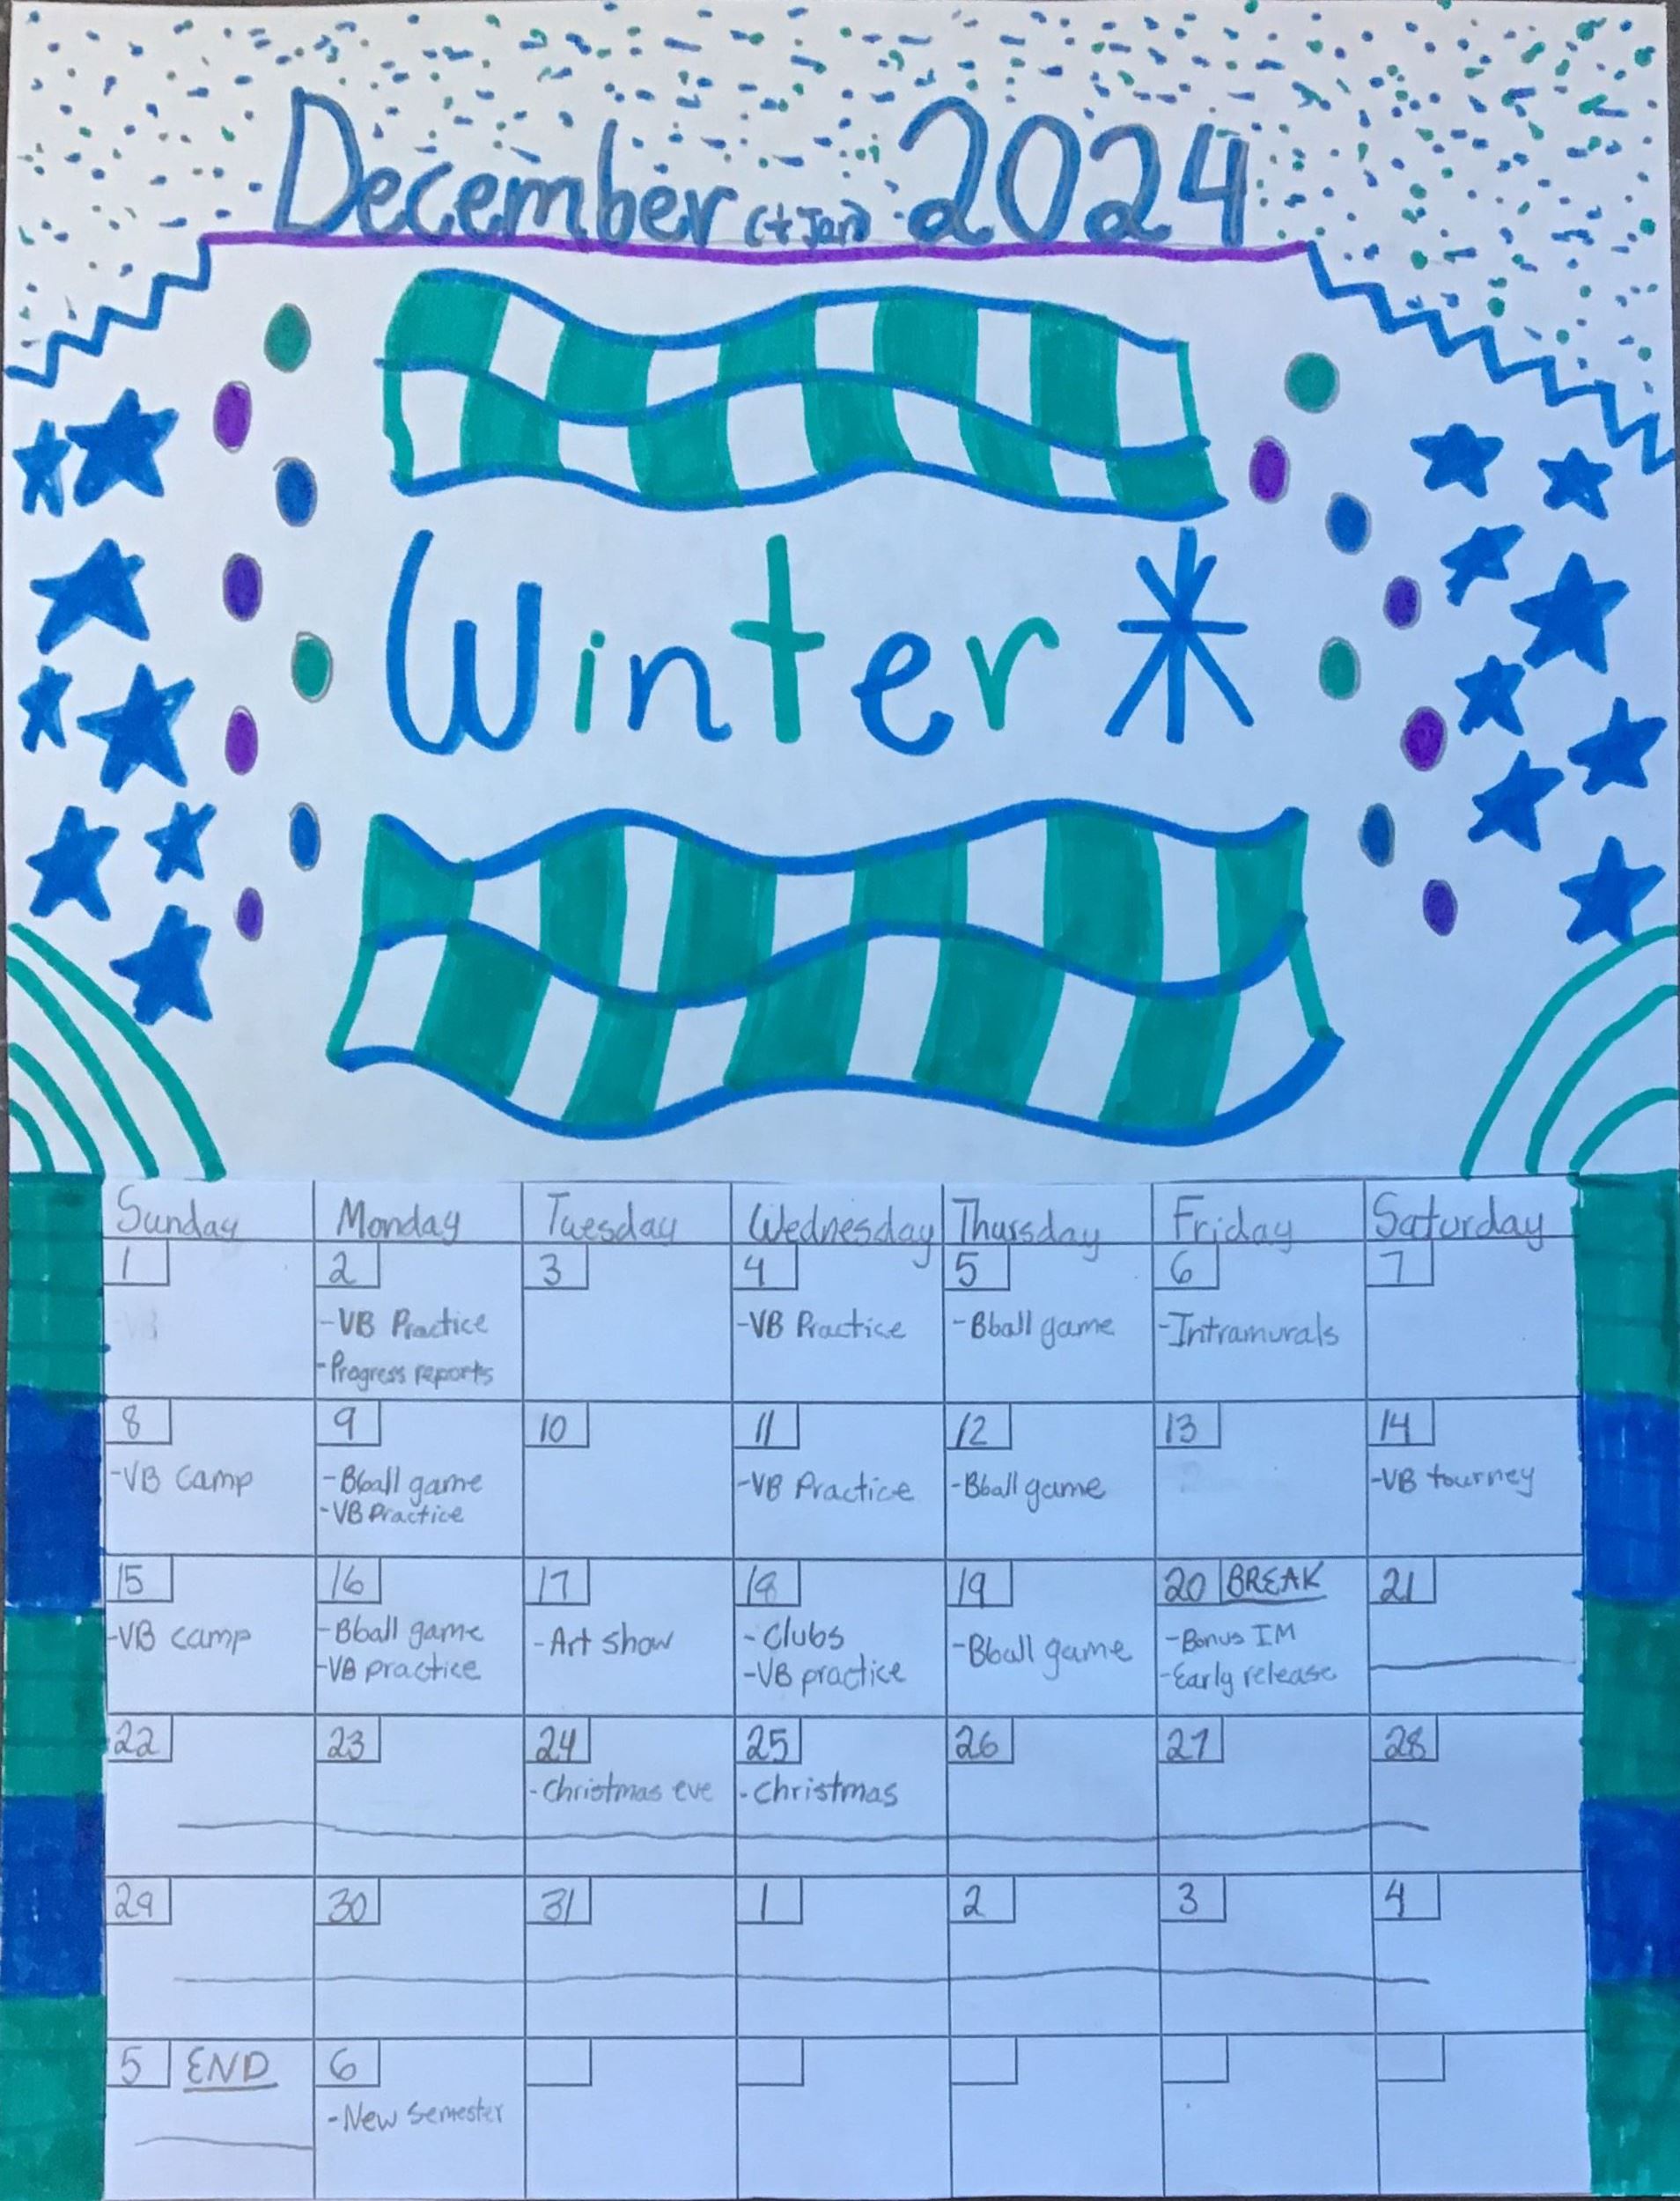 December (+Jan) 2024
Winter
Sunday Monday Tuesday Wednesday Thursday Friday Saturday
1 2 3 4 5 6 7
-VB Practice -VB Practice -Bball game -Intramurals
-Progress reports
8 9 10 11 12 13 14
-VB Camp -Bball game -VB Practice -Bball game -VB tourney
-VB Practice
15 16 17 18 19 20 BREAK 21
-VB camp -Bball game -Art show -Clubs -Bball game -Bonus IM
-VB practice -VB practice -Early release
22 23 24 25 26 27 28
-Christmas eve -Christmas
29 30 31 1 2 3 4
5 END 6
-New Semester